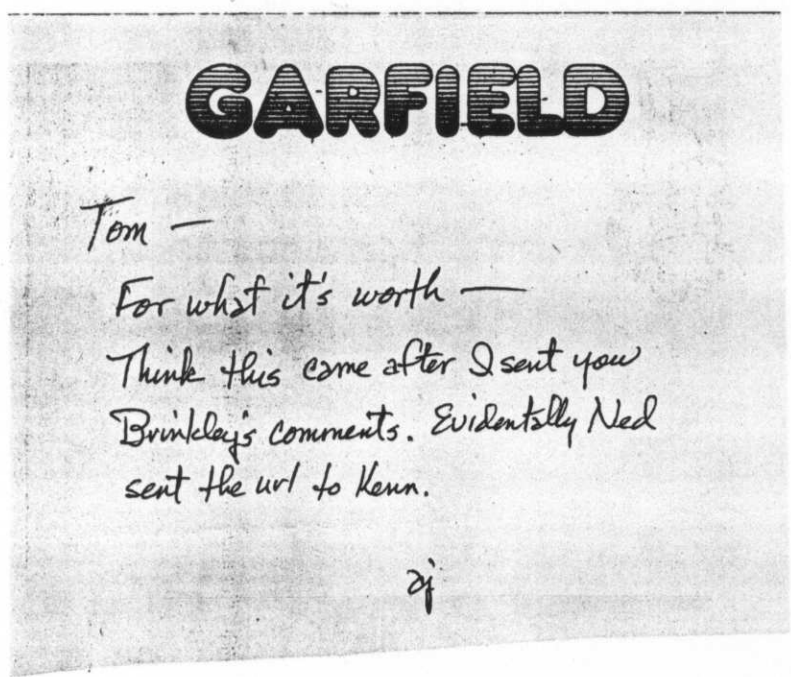 GARFIELD
Tom —
For what it's worth —
Think this came after I sent you
Brinkley's comments. Evidentally Ned
sent the url to Kenn.
aj